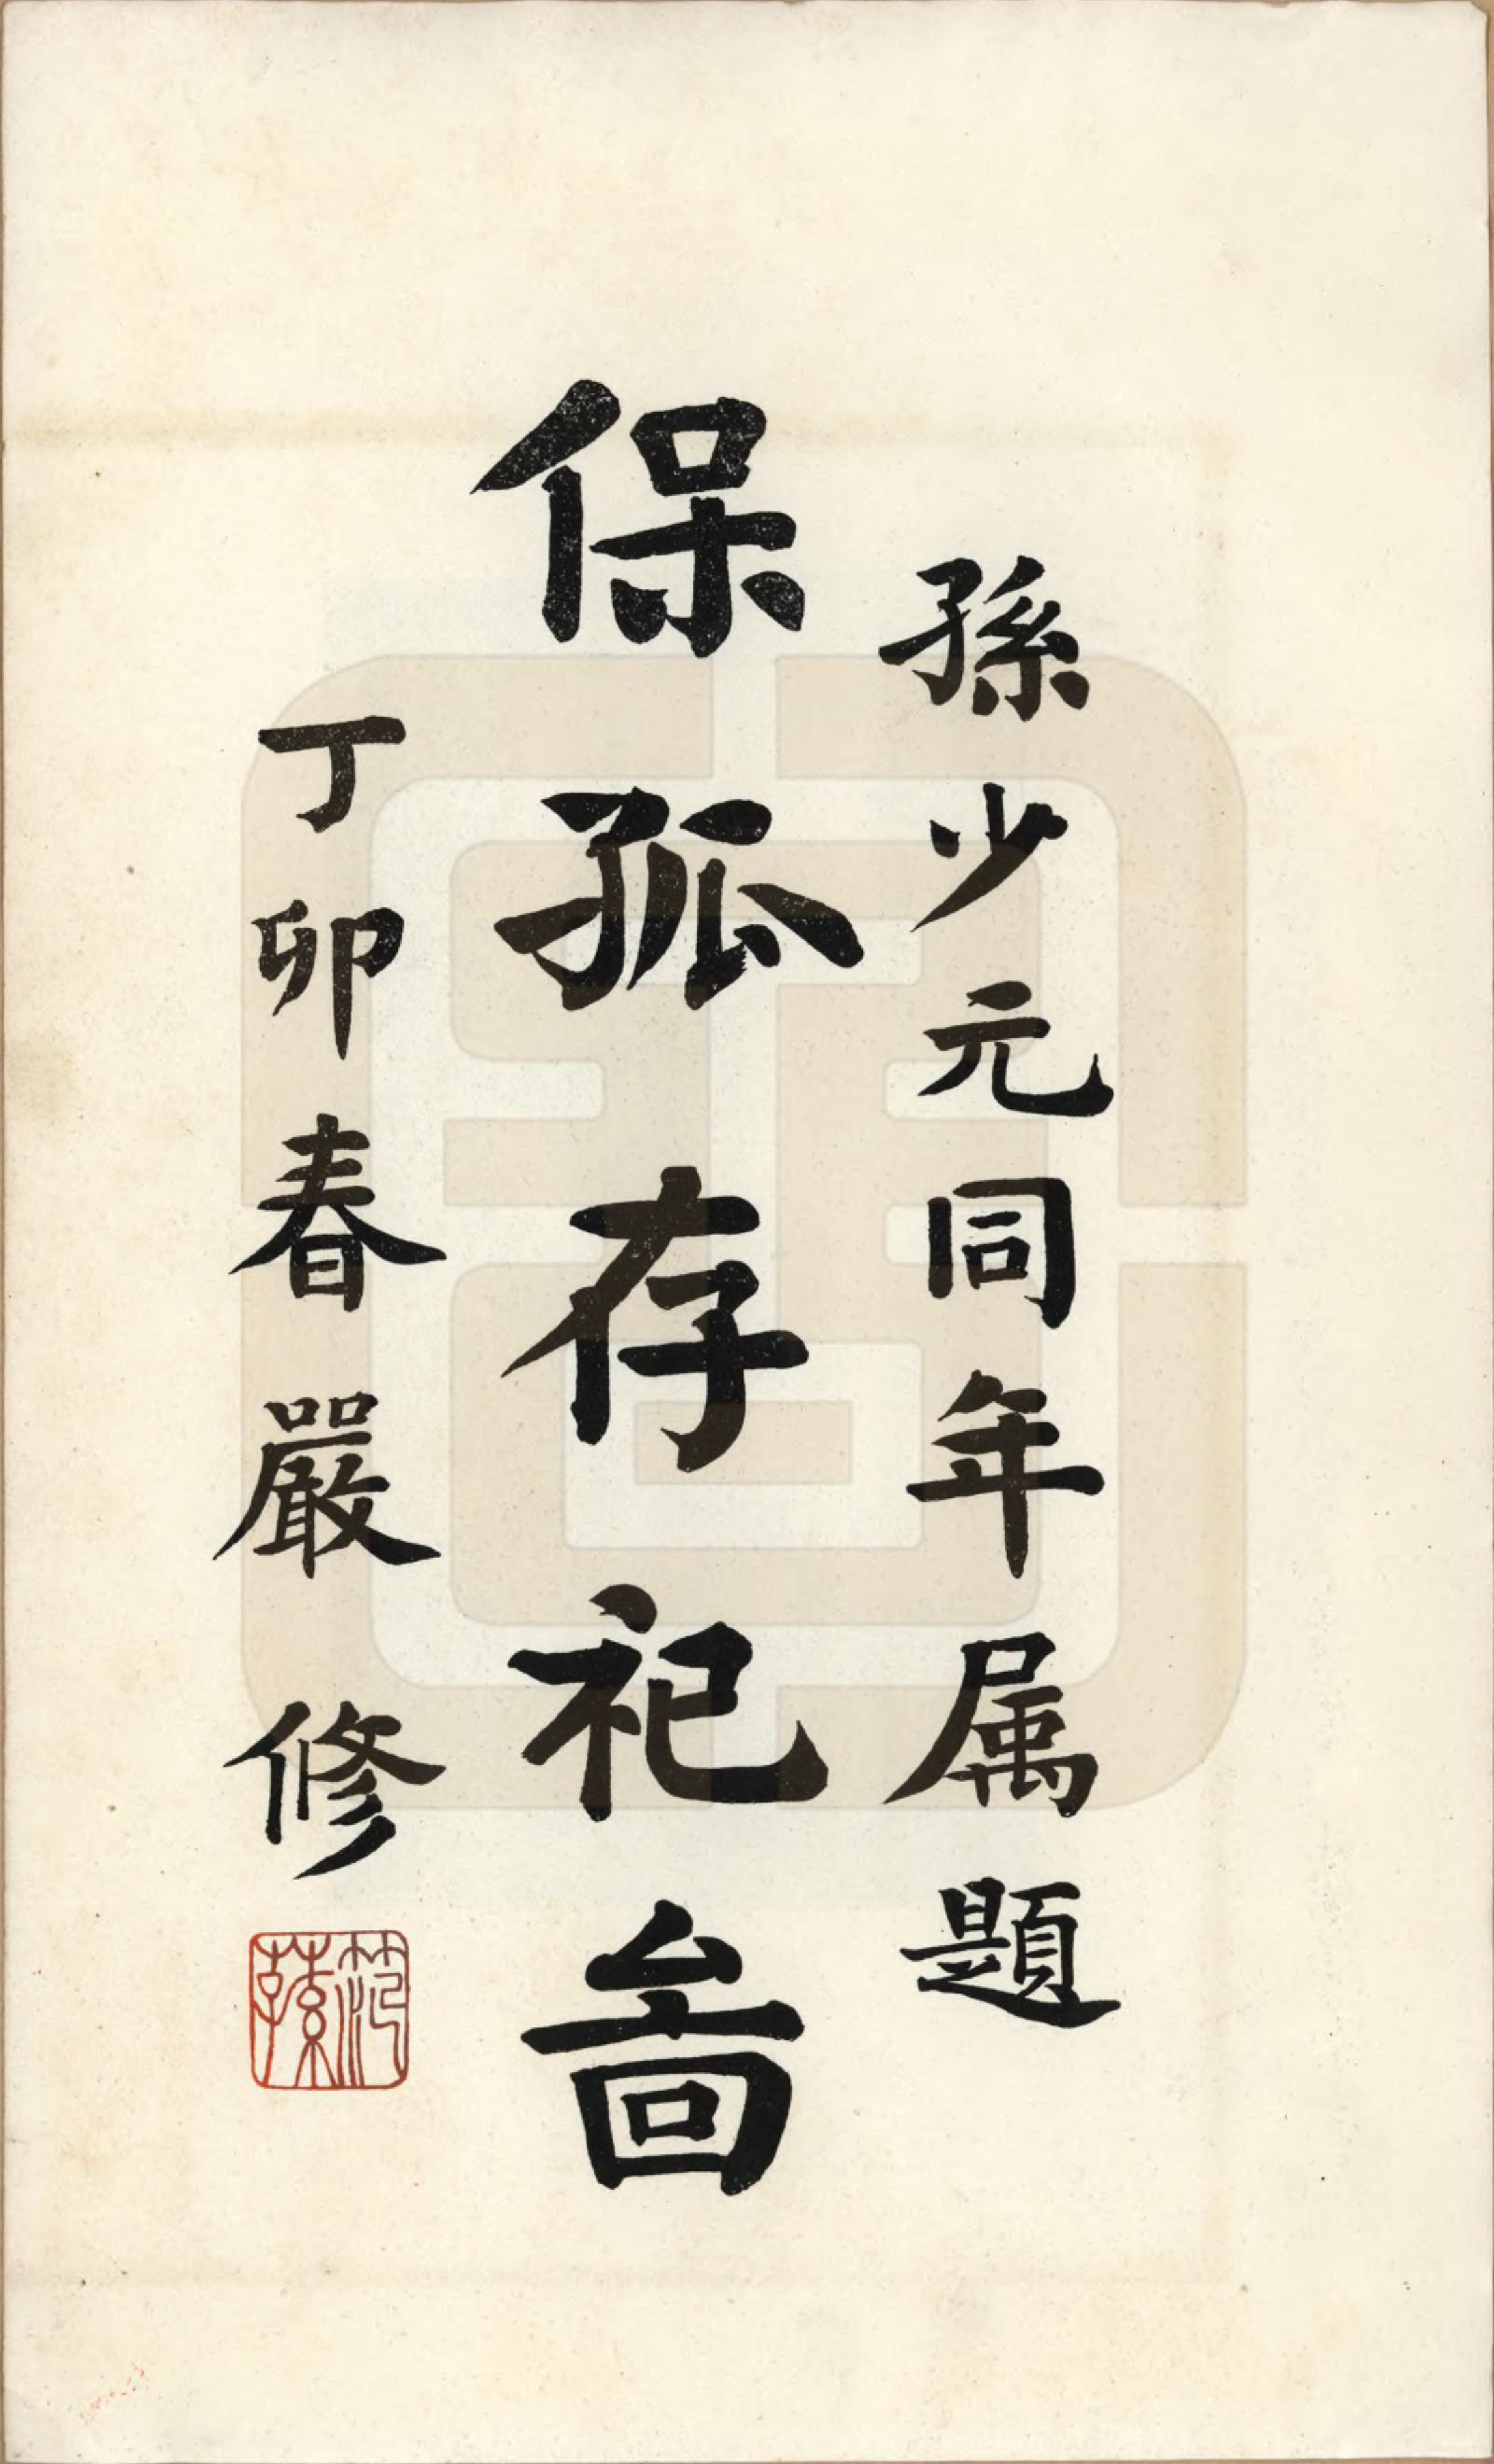 孫少元同年属題
保孤存祀啚
丁卯春嚴修
範孫